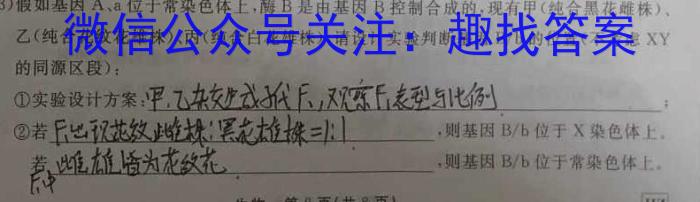 3)假如基因 A、a 位于常染色体上,酶 B 是由基因 B 控制合成的,现有甲(纯合黑花雌株)、
乙(纯合花纹花雄株)、丙(纯合白花雄株),请设计实验判断 XY
微信公众号关注：趣找答案
的同源区段):
①实验设计方案:甲、乙杂交生成子代F₁,观察F₁表型与比例;
②若F₁出现花纹雌株:黑花雄株=1:1,则基因 B/b 位于 X 染色体上。
若F₁中雌雄皆为花纹花,则基因 B/b 位于常染色体上。